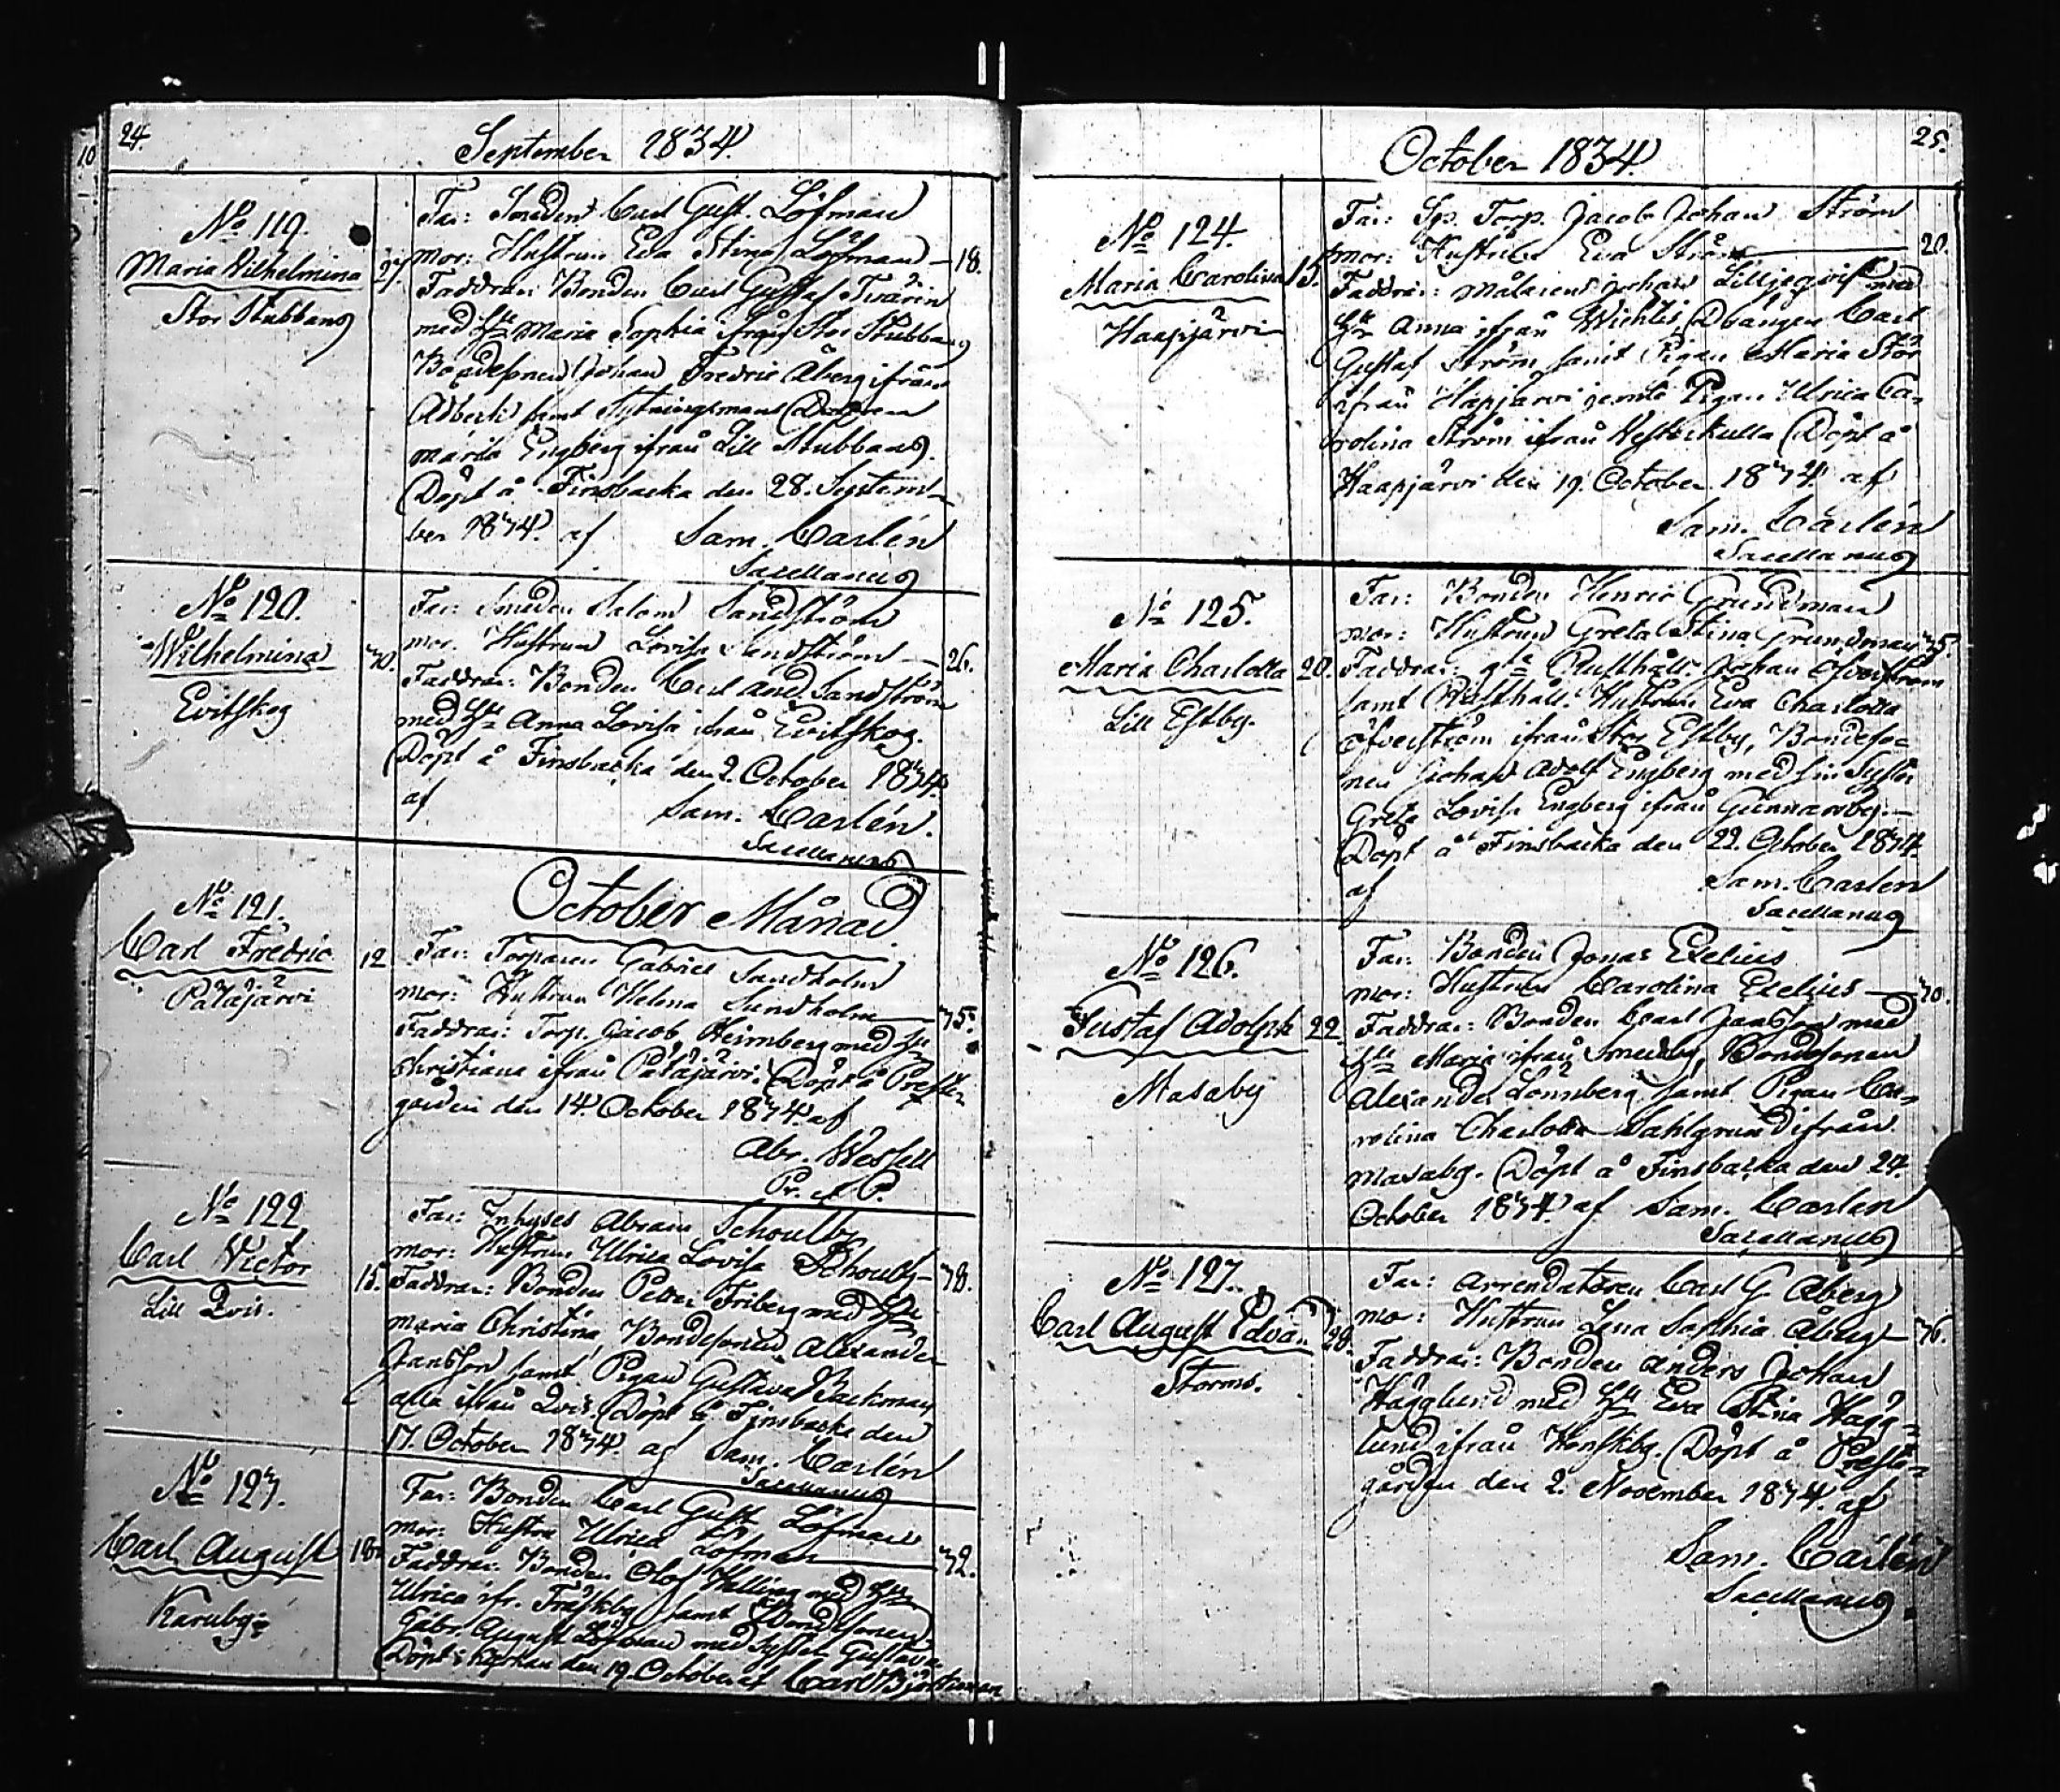 24.
September 1834.
No 119.
Maria Wilhelmina
Stor Stubbans
27.
Far: Smeden Carl Gust. Löfman
mor: Hustrun Eva Stina Löfman — 18.
Faddrar: Bonden Carl Gustaf
med Hu Maria Sophia ifrån Stor Stubbans
Bondesonen Johan Fredric Åberg ifrån
samt Sytningsmans Dottren
Engberg ifrån Lill Stubbans.
Döpt å Finsbacka den 28. Septem-
ber 1834. af Sam. Carlén
Sacellanus
No 120.
Wilhelmina
Evitskog
30.
Far: Smeden Salom Sandström
mor. Hustrun Lovisa Sandström — 26.
Faddrar: Bonden Carl And. Sandström
med Hu Anna Lovisa ifrån Evitskog.
Döpt å Finsbacka den 2. October 1834.
af Sam. Carlén.
Sacellanus
October Månad
No 121.
Carl Fredric
Palajärvi
12
Far: Torparen Gabriel Sundholm
mor: Hustrun Helena Sundholm — 35.
Faddrar: Torp. Jacob Heimberg med Hu
Christiana ifrån Palajärvi. Döpt å Prest-
gården den 14 October 1834. af
Abr. Wessell
No 122
Carl Victor
Lill Qvis.
15.
Far: Inhyses Abram Schoulby
mor: Hustrun Ulrica Lovisa Schoulby — 38.
Faddrar: Bonden Petter Friberg med Hu
Maria Christina, Bondesonen Alexander
Jansson samt Pigan Gustava Backman
alla ifrån Qvis. Döpt å Finsbacka den
17. October 1834. af Sam. Carlén
Sacellanus
No 123.
Carl August
Karuby
18.
Far: Bonden Carl Gust Löfman
mor: Hustru Ulrica Löfman — 32.
Faddrar: Bonden Olof Helling med Hu
Ulrica ifr. Träskby samt Bondesonen
Gabr. August Löfman med Syster Gustava
Döpt i Kyrkan den 19. October af Carl Björkman
25.
October 1834.
No 124.
Maria Carolina
Haapjärvi
15.
Far: Sp. Torp. Jacob Johan Ström
mor: Hustrun Eva Ström — 20.
Faddrar: Målaren Johan Lilljeqvist med
Hu Anna ifrån Wichtis, Drängen Carl
Gustaf Ström samt Pigan Maria Stör
ifrån Hapjärvi jemte Pigan Ulrica Ca-
rolina Ström ifrån Westerkulla Döpt å
Haapjärvi den 19. October 1834 af
Sam. Carlén
Sacellanus
No 125.
Maria Charlotta
Lill Estby.
20.
Far: Bonden Henric Grundman
mor: Hustrun Greta Stina Grundman 35.
Faddrar: Rusthåll. Johan Öfverström
samt Rusthåll. Hustrun Eva Charlotta
Öfverström ifrån Stor Estby, Bondeso-
nen Johan Adolf Engberg med sin Syster
Greta Lovisa Engberg ifrån Gunnarsby. —
Döpt å Finsbacka den 22. October 1834.
af Sam. Carlen
Sacellanus
No 126.
Gustaf Adolph
Masaby
22.
Far: Bonden Jonas Exelius
mor: Hustrun Carolina Exelius — 30.
Faddrar: Bonden Carl Jansson med
Hu Maria ifrån Smedsby, Bondesonen
Alexander Lönnberg samt Pigan Ca-
rolina Charlotta Sahlgrund ifrån
Masaby. Döpt å Finsbacka den 24.
October 1834. af Sam. Carlen
Sacellanus
No 127.
Carl August Edvard
Storms.
28.
Far: Arrendatoren Carl G. Åberg
mor: Hustrun Lena Sophia Åberg — 36.
Faddrar: Bonden Anders Johan
Hägglund med Hu Eva Stina Hägg-
lund ifrån Honskby. Döpt å Prest-
gården den 2. November 1834. af
Sam. Carlén
Sacellanus